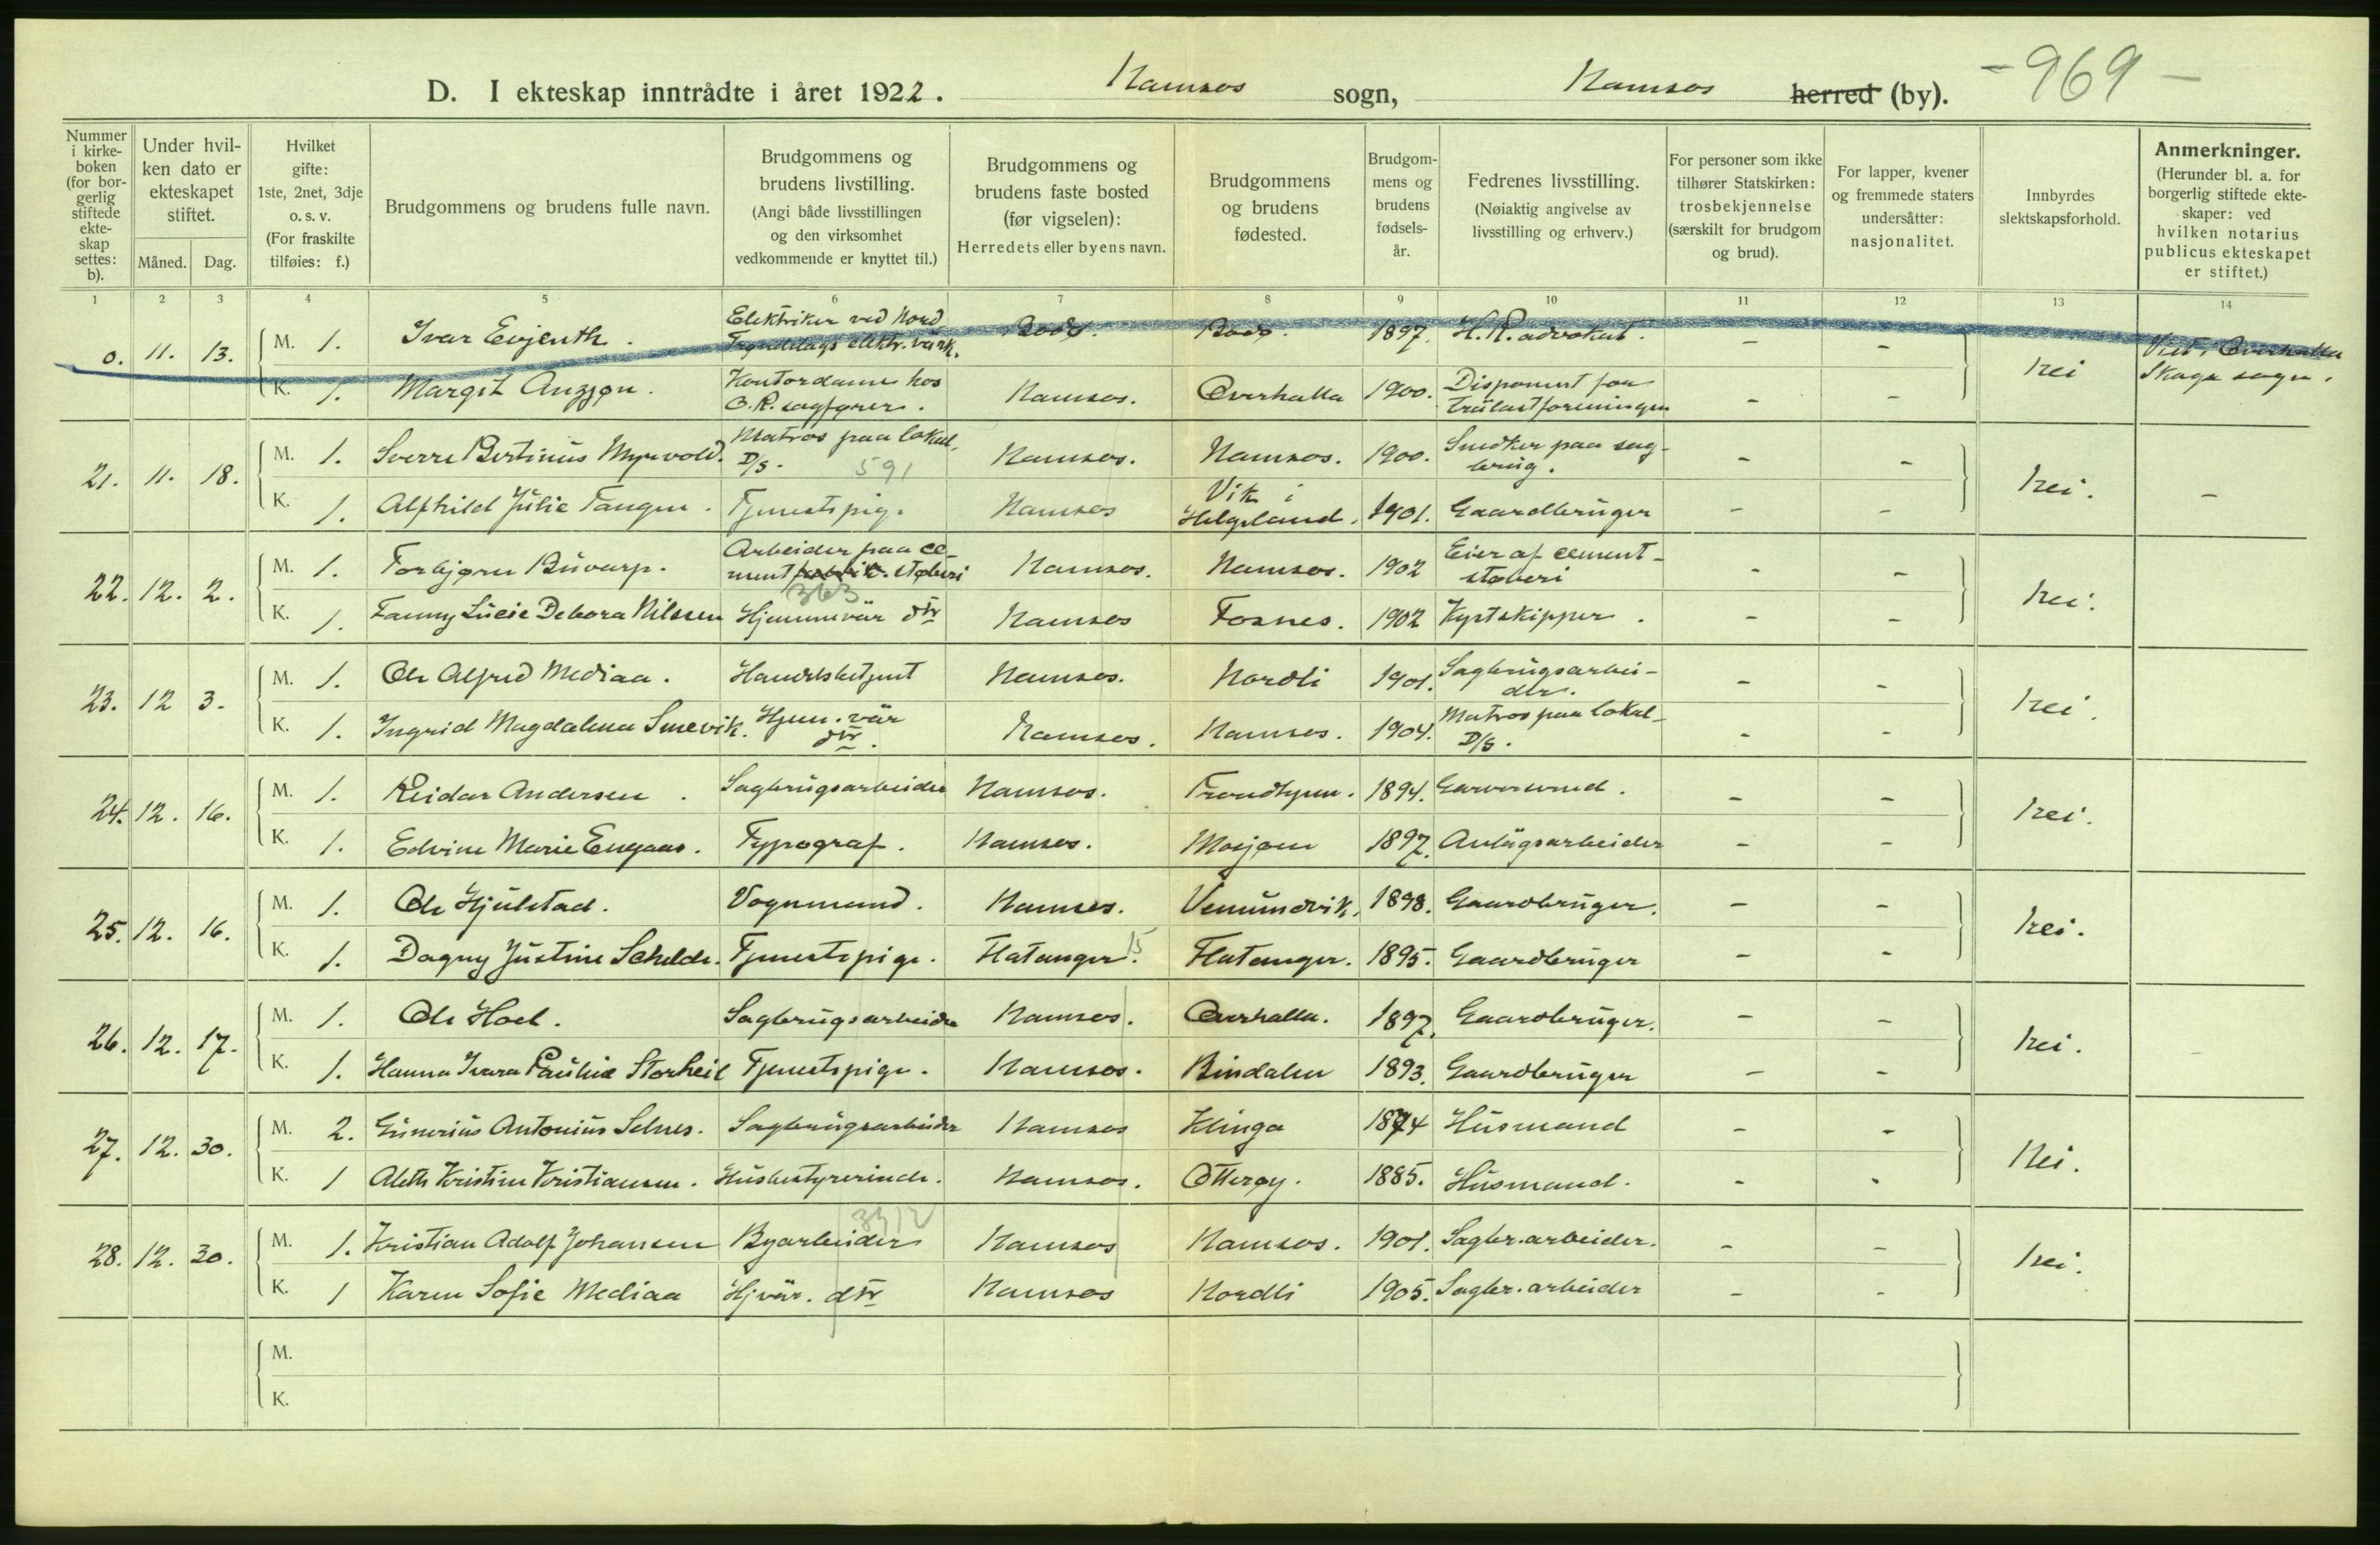 - 969 -
D. I ekteskap inntrådte i året 1922. Namsos sogn, Namsos herred (by).
Nummer i kirkeboken (for borgerlig stiftede ekteskap settes: b).
Under hvilken dato er ekteskapet stiftet.
Måned. Dag.
Hvilket gifte: 1ste, 2net, 3dje o. s. v. (For fraskilte tilføies: f.)
Brudgommens og brudens fulle navn.
Brudgommens og brudens livstilling. (Angi både livsstillingen og den virksomhet vedkommende er knyttet til.)
Brudgommens og brudens faste bosted (før vigselen): Herredets eller byens navn.
Brudgommens og brudens fødested.
Brudgommens og brudens fødselsår.
Fedrenes livsstilling. (Nøiaktig angivelse av livsstilling og erhverv.)
For personer som ikke tilhører Statskirken: trosbekjennelse (særskilt for brudgom og brud).
For lapper, kvener og fremmede staters undersåtter: nasjonalitet.
Innbyrdes slektskapsforhold.
Anmerkninger. (Herunder bl. a. for borgerlig stiftede ekteskaper: ved hvilken notarius publicus ekteskapet er stiftet.)
1 2 3 4 5 6 7 8 9 10 11 12 13 14
0. 11. 13. M. 1. Ivar Evjenth. Elektriker ved Nord Trøndelags elektr. værk. Bodø. Bodø. 1897. H.R. advokat. - - Nei Viet i Overhalla Skage sogn.
K. 1. Margit Anzjøn. Kontordame hos O.R. sagfører. Namsos. Overhalla 1900. Disponent for trælastforeningen - -
21. 11. 18. M. 1. Sverre Bertinus Myrvold. Matros paa lokal D/s. 591 Namsos. Namsos. 1900. Snedker paa sagbrug. - - Nei. -
K. 1. Alfhild Julie Tangen. Tjenestepige Namsos Vik i Helgeland. 1901. Gaardbruger - -
22. 12. 2. M. 1. Torbjørn Buvarp. Arbeider paa cementfabrik. støberi 363 Namsos. Namsos. 1902 Eier af cementstøberi - - Nei.
K. 1. Fanny Lucie Debora Nilssen Hjemmevær dtr Namsos Fosnes. 1902 Kystskipper. - -
23. 12 3. M. 1. Ole Alfred Mediaa. Handelsbetjent Namsos. Nordli 1901. Sagbrugsarbeider. - - Nei.
K. 1. Ingrid Magdalena Smevik. Hjem. vær dtr. Namsos. Namsos. 1904. Matros paa lokal D/s. - -
24. 12. 16. M. 1. Reidar Andersen. Sagbrugsarbeider Namsos. Trondhjem. 1894. Garversvend. - - Nei.
K. 1. Edvine Marie Engaas. Typograf. Namsos. Mosjøen 1897. Anlægsarbeider - -
25. 12. 16. M. 1. Ole Hjulstad. Vognmand. Namsos. Vemundvik. 1898. Gaardbruger. - - Nei.
K. 1. Dagny Justine Schelde. Tjenestepige. Flatanger. 15 Flatanger. 1895. Gaardbruger - -
26. 12. 17. M. 1. Ole Hoel. Sagbrugsarbeider Namsos. Overhalla. 1897. Gaardbruger. - - Nei.
K. 1. Hanna Ivara Pauline Storheil Tjenestepige. Namsos. Bindalen 1893. Gaardbruger - -
27. 12. 30. M. 2. Gunerius Antonius Selnes. Sagbrugsarbeider Namsos Klinga 1874 Husmand - - Nei.
K. 1 Aleth Kristine Kristiansen. Husbestyrerinde. Namsos. Otterøy. 1885. Husmand. - -
28. 12. 30. M. 1. Kristian Adolf Johansen Byarbeider Namsos Namsos. 1901. Sagbr. arbeider. - - Nei.
K. 1 Karen Sofie Mediaa Hjvær. dtr Namsos Nordli 1905. Sagbr. arbeider - -
M.
K.